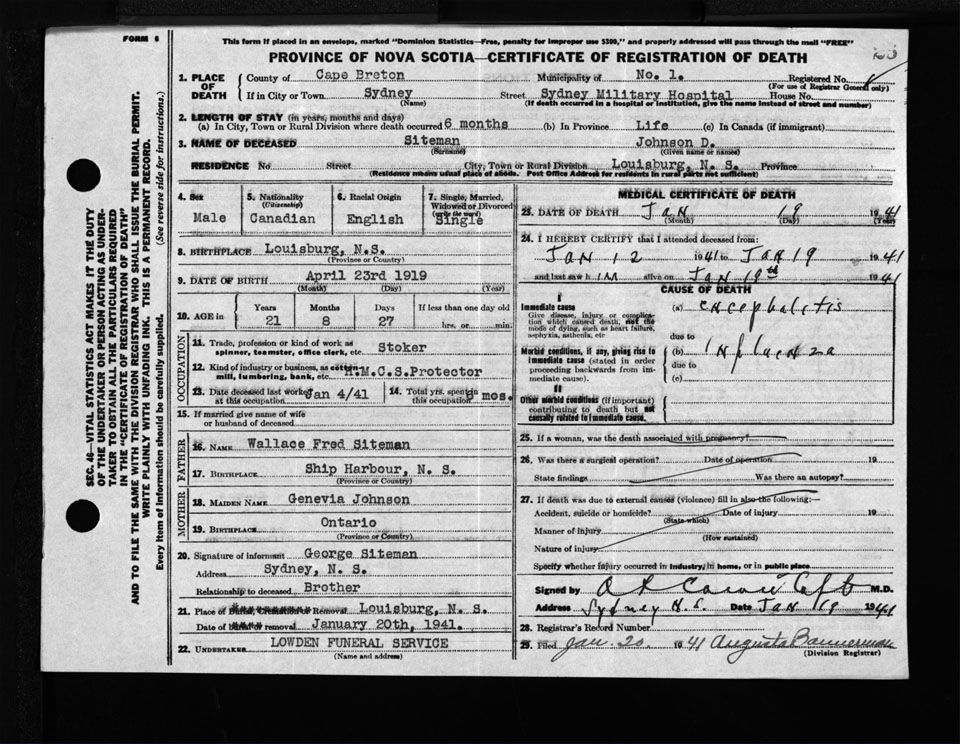 FORM 6
This form if placed in an envelope, marked "Dominion Statistics—Free, penalty for improper use $300," and properly addressed will pass through the mail "FREE"
PROVINCE OF NOVA SCOTIA—CERTIFICATE OF REGISTRATION OF DEATH
1. PLACE OF DEATH
County of Cape Breton Municipality of No. 1. Registered No.
(For use of Registrar General only)
If in City or Town Sydney Street Sydney Military Hospital House No.
(Name) (If death occurred in a hospital or institution, give the name instead of street and number)
2. LENGTH OF STAY (in years, months and days)
(a) In City, Town or Rural Division where death occurred 6 months (b) In Province Life (c) In Canada (if immigrant)
3. NAME OF DECEASED Siteman Johnson D.
(Surname) (Given name or names)
RESIDENCE No Street City, Town or Rural Division Louisburg, N. S. Province
(Residence means usual place of abode. Post Office Address for residents in rural parts not sufficient)
4. Sex Male
5. Nationality (Citizenship) Canadian
6. Racial Origin English
7. Single, Married, Widowed or Divorced (write the word) Single
8. BIRTHPLACE Louisburg, N.S.
(Province or Country)
9. DATE OF BIRTH April 23rd 1919
(Month) (Day) (Year)
10. AGE in Years Months Days If less than one day old
21 8 27 hrs. or min.
OCCUPATION
11. Trade, profession or kind of work as spinner, teamster, office clerk, etc. Stoker
12. Kind of industry or business, as cotton mill, lumbering, bank, etc. H.M.C.S.Protector
13. Date deceased last worked at this occupation Jan 4/41
14. Total yrs. spent in this occupation mos.
15. If married give name of wife or husband of deceased
FATHER
16. NAME Wallace Fred Siteman
17. BIRTHPLACE Ship Harbour, N. S.
(Province or Country)
MOTHER
18. MAIDEN NAME Genevia Johnson
19. BIRTHPLACE Ontario
(Province or Country)
20. Signature of informant George Siteman
Address Sydney, N. S.
Relationship to deceased Brother
21. Place of Burial, Cremation or Removal Louisburg, N. S.
Date of burial or removal January 20th, 1941.
22. UNDERTAKER LOWDEN FUNERAL SERVICE
(Name and address)
MEDICAL CERTIFICATE OF DEATH
23. DATE OF DEATH JAN 19 1941
(Month) (Day) (Year)
24. I HEREBY CERTIFY that I attended deceased from:
JAN 12 1941 to JAN 19 1941
and last saw h IM alive on JAN 19th 1941
CAUSE OF DEATH
I
Immediate cause
Give disease, injury or complication which caused death, not the mode of dying, such as heart failure, asphyxia, asthenia, etc
(a) encephalitis
due to
Morbid conditions, if any, giving rise to immediate cause (stated in order proceeding backwards from immediate cause).
(b) Influenza
due to
(c)
II
Other morbid conditions (if important) contributing to death but not causally related to immediate cause.
25. If a woman, was the death associated with pregnancy?
26. Was there a surgical operation? Date of operation 19
State findings Was there an autopsy?
27. If death was due to external causes (violence) fill in also the following:—
Accident, suicide or homicide? Date of injury 19
(State which)
Manner of injury
(How sustained)
Nature of injury
Specify whether injury occurred in industry, in home, or in public place
Signed by M.D.
Address Sydney N.S. Date JAN 19 1941
28. Registrar's Record Number
29. Filed Jan 20. 1941 Augusta Bannerman
(Division Registrar)
SEC. 46—VITAL STATISTICS ACT MAKES IT THE DUTY
OF THE UNDERTAKER OR PERSON ACTING AS UNDER-
TAKER TO OBTAIN ALL THE PARTICULARS REQUIRED
IN THE "CERTIFICATE OF REGISTRATION OF DEATH"
AND TO FILE THE SAME WITH THE DIVISION REGISTRAR WHO SHALL ISSUE THE BURIAL PERMIT.
WRITE PLAINLY WITH UNFADING INK. THIS IS A PERMANENT RECORD.
Every item of information should be carefully supplied. (See reverse side for instructions.)